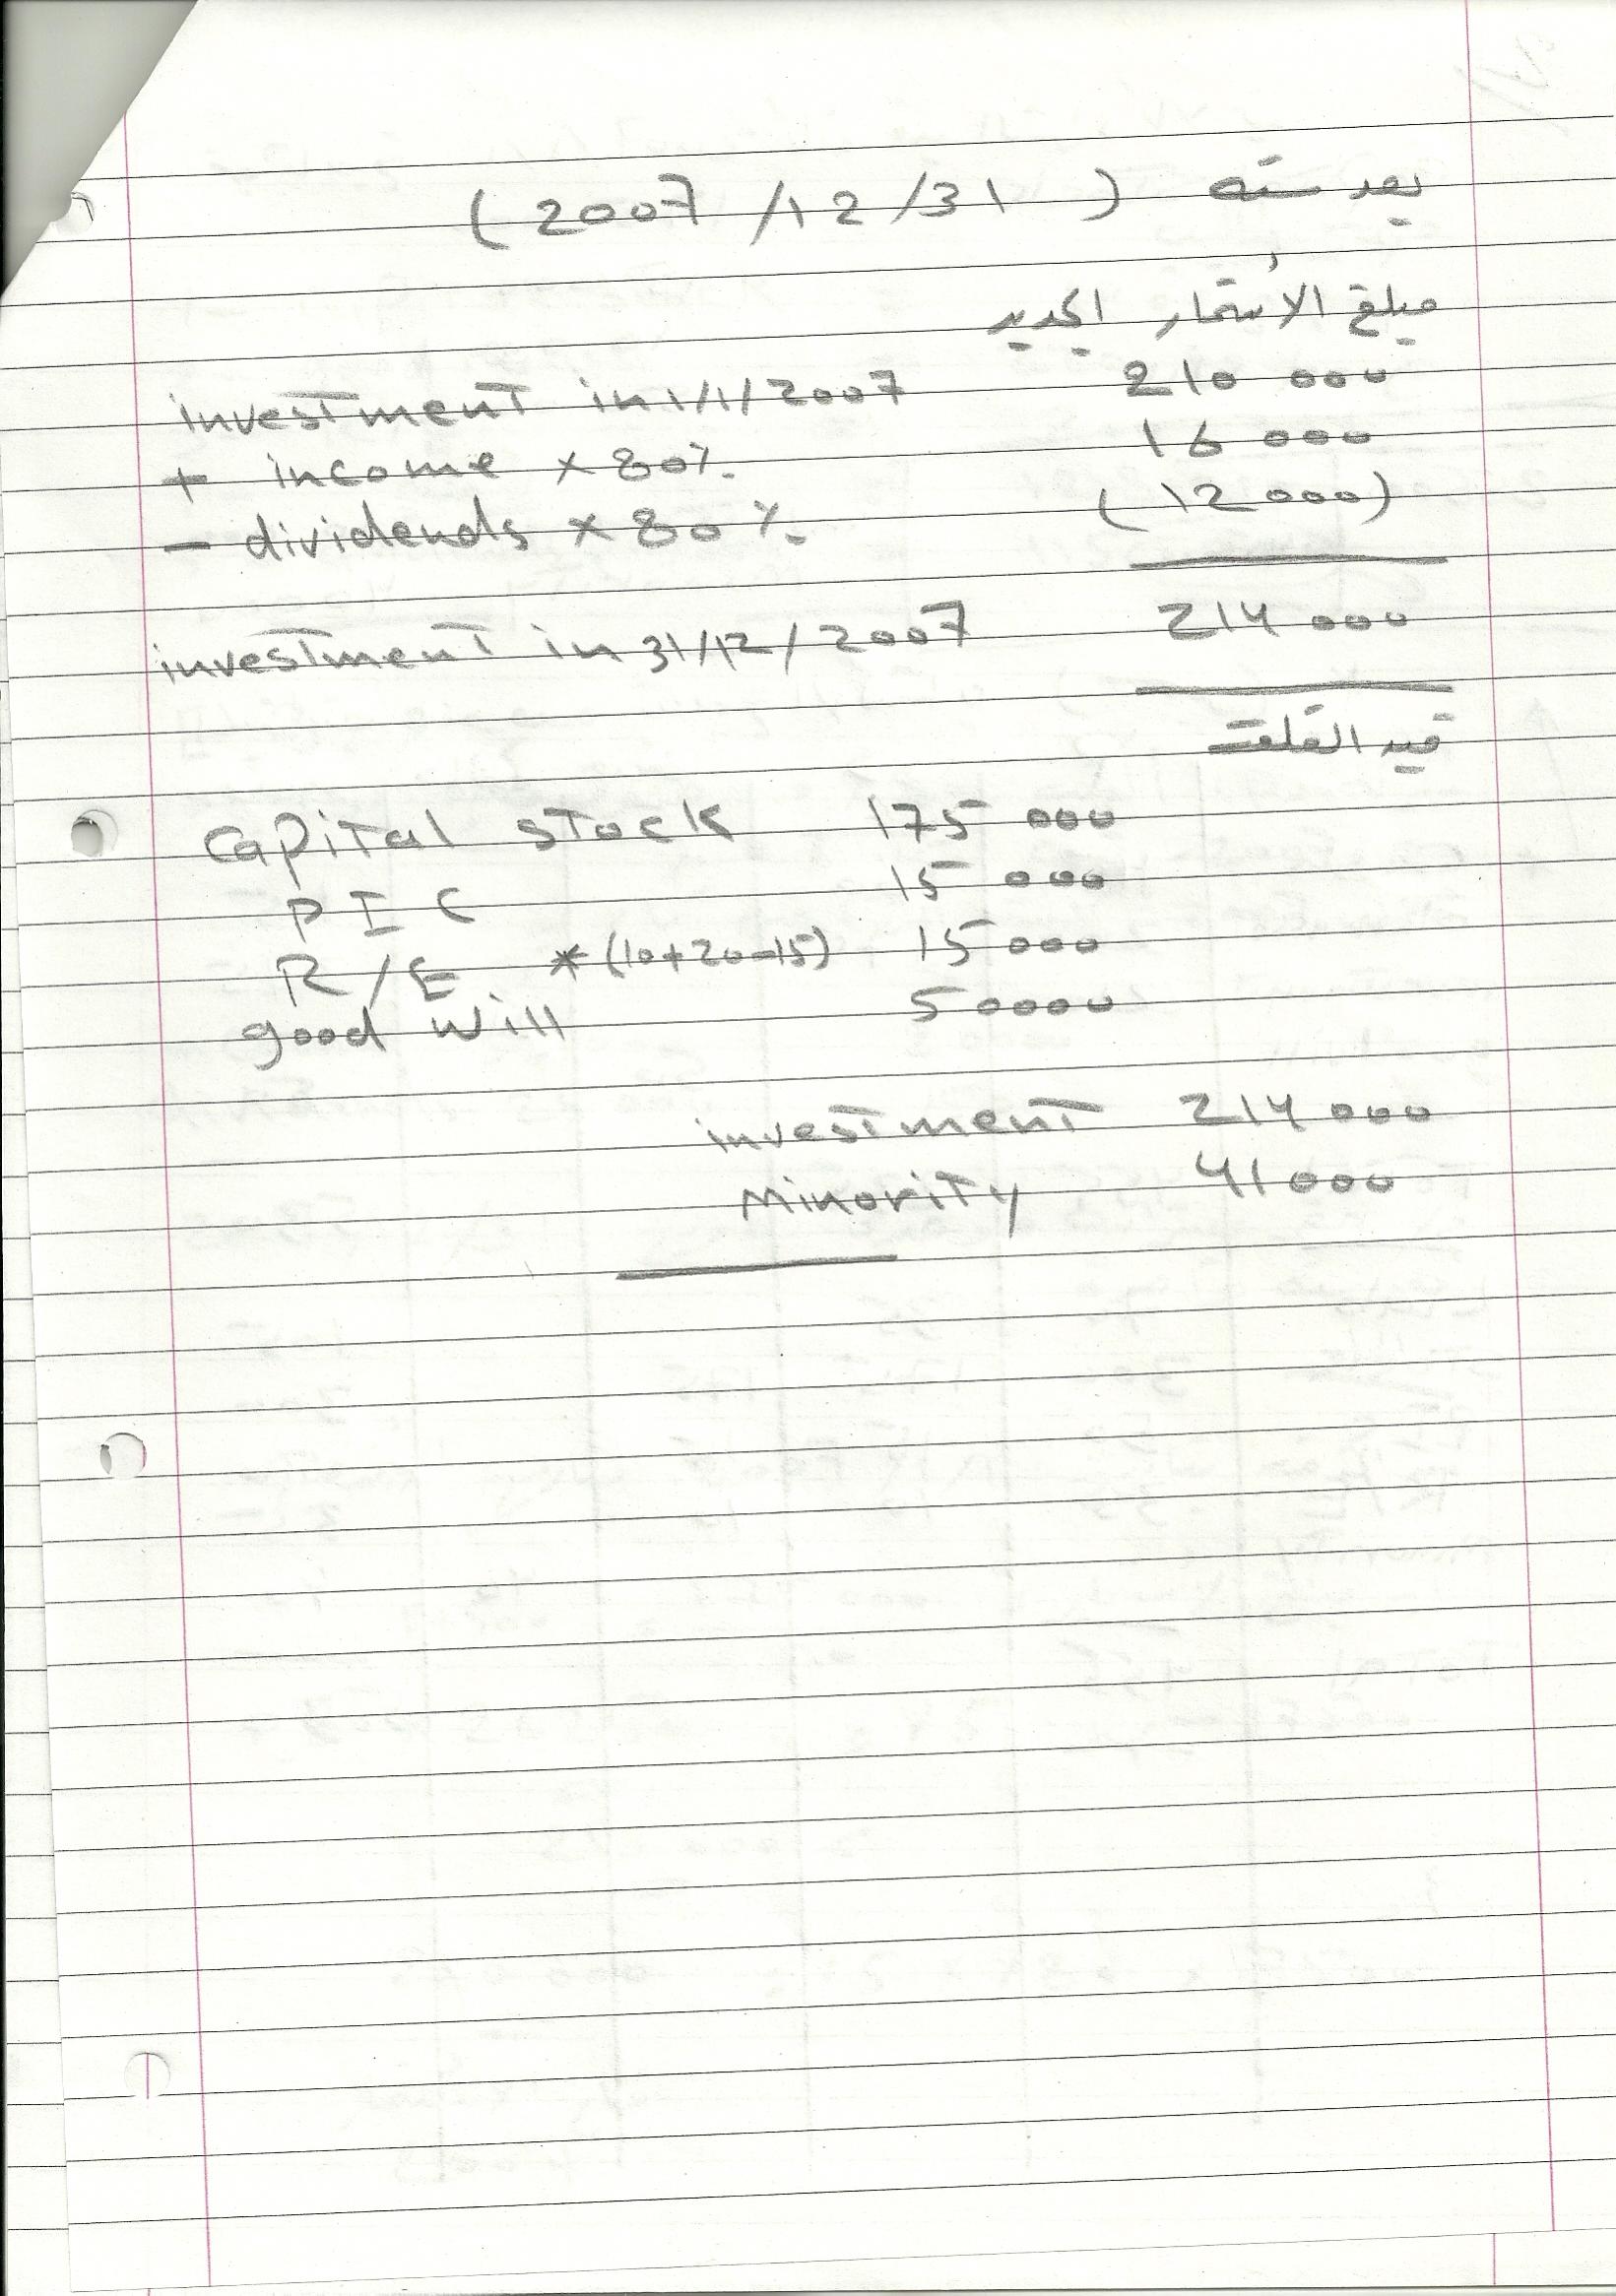 بعد سنه ( 2007 /12 /31 )
مبلغ الأستثمار الجديد
investment in 1/1/2007 210 000
+ income x 80% 16 000
- dividends x 80% ( 12 000)
investment in 31/12/2007 214 000
قيد
capital stock 175 000
P I C 15 000
R/E *(10+20-15) 15 000
good will 50000
investment 214 000
Minority 41000